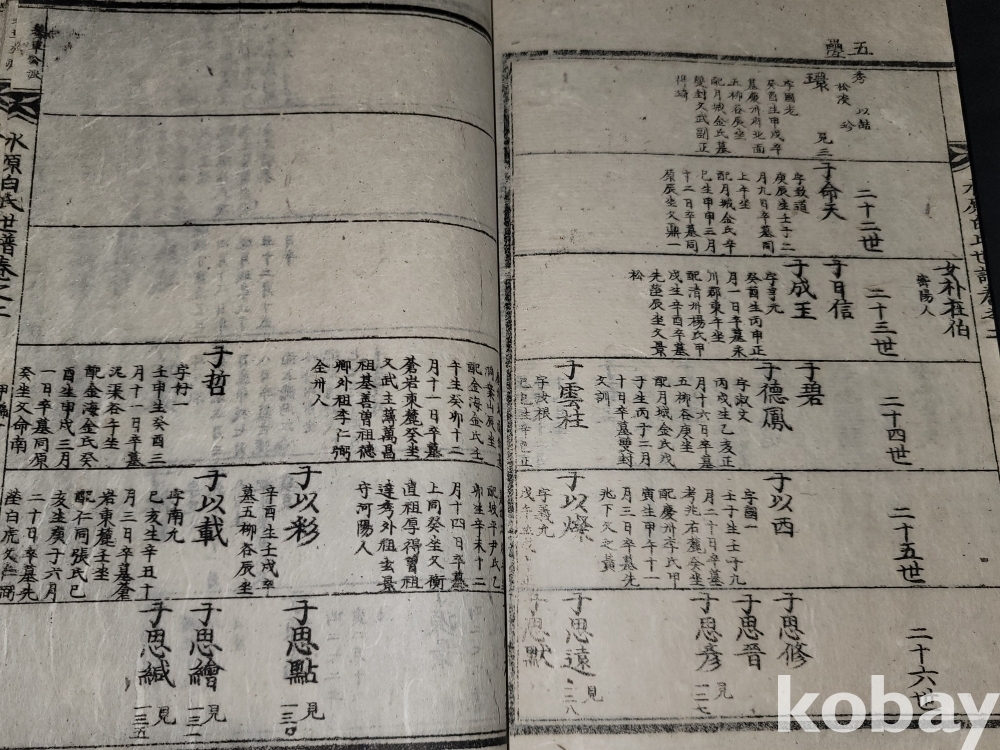 五
秀
以喆
松溪
珍
瓌
見三
字國老
癸酉生甲戌卒
墓慶州府北面
五柳谷辰坐
配月城金氏墓
雙封文武副正
得琦
二十二世
子命天
字致道
庚辰生壬子二
月九日卒墓同
上午坐
配月城金氏辛
巳生甲申三月
十二日卒墓同
原辰坐文鼎一
女朴枉伯
密陽人
二十三世
子日信
子成玉
字亨九
癸酉生丙申正
月一日卒墓末
川郡東午坐
配清州楊氏甲
戌生辛酉卒墓
先塋辰坐文景
松
二十四世
子碧
子德鳳
字淑文
丙戌生乙亥正
月十六日卒墓
五柳谷庚坐
配月城金氏戊
子生丙子二月
十日卒墓雙封
文訓
子雲柱
字汝根
二十五世
子以西
字國一
壬子生壬子九
月二十日卒墓
考兆右麓癸坐
配慶州李氏甲
寅生甲午十一
月三日卒墓先
兆下文之黃
子以燦
字義九
二十六世
子思修
子思晋
子思彥
見一二七
子思遠
見一二八
子思默
水原白氏世譜卷之二
配金海金氏壬
午生癸卯十二
月十一日卒墓
蒼岩東麓癸坐
文武主簿萬昌
祖基善曽祖德
卿外祖李仁弼
全州人
子哲
字行一
壬申生癸酉三
月十一日卒墓
泥渠谷午坐
配金海金氏癸
酉生甲戌三月
一日卒墓同原
癸坐文命南
配坡平尹氏己
卯生辛未十二
月十四日卒墓
上同癸坐文衡
直祖厚得曽祖
達秀外祖玄景
守河陽人
子以彩
辛酉生壬戌卒
墓五柳谷辰坐
子以載
字南九
己亥生辛丑十
月三日卒墓蒼
岩東麓壬坐
配仁同張氏己
亥生庚子六月
二十日卒墓先
塋白虎文
子思點
見一三〇
子思繪
見一三一
子思緘
見一三五
kobay